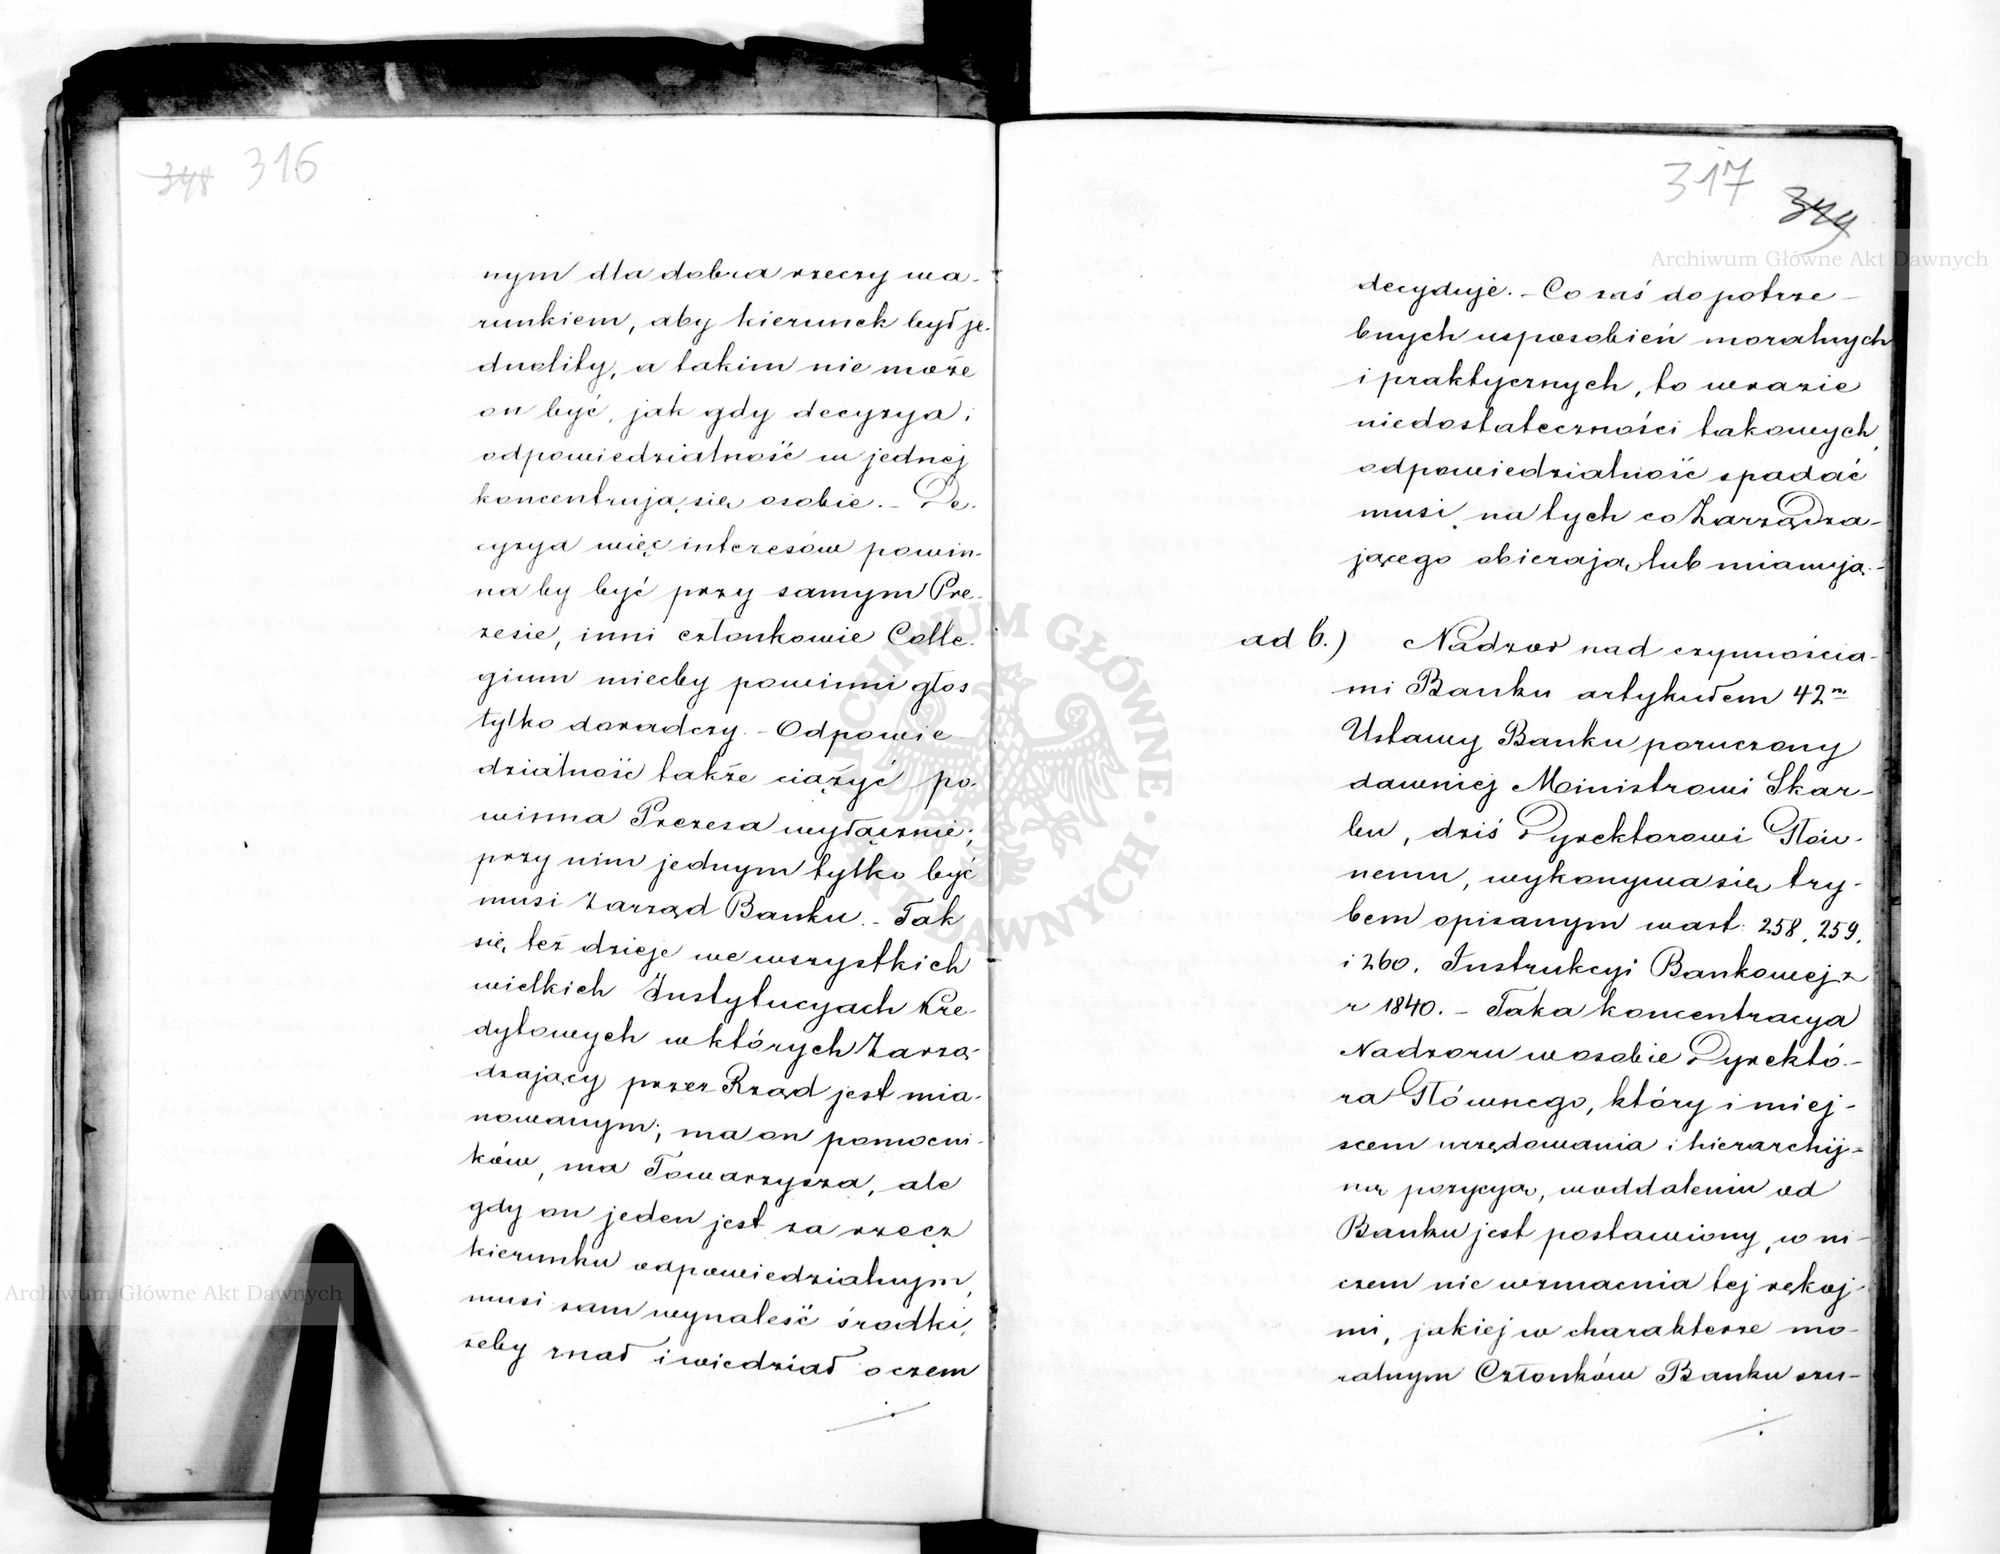 348 316
nym dla dobra rzeczy wa-
runkiem, aby kierunek był je-
dnolity, a takim nie może
on być, jak gdy decyzya i
odpowiedzialność w jednej
koncentrują się osobie. - De-
cyzya więc interesów powin-
na by być przy samym Pre-
zesie, inni członkowie Colle-
gium miećby powinni głos
tylko doradczy. - Odpowie
dzialność także ciążyć po-
winna Prezesa wyłącznie;
przy nim jednym tylko być
musi Zarząd Banku. - Tak
się też dzieje we wszystkich
wielkich Instytucyach Kre-
dytowych w których Zarzą-
dzający przez Rząd jest mia-
nowanym; ma on pomocni-
ków, ma Towarzysza, ale
gdy on jeden jest za rzecz
kierunku odpowiedzialnym,
musi sam wynaleść środki,
żeby znał i wiedział o czem
317 349
decyduje. - Co zaś do potrze-
bnych usposobień moralnych
i praktycznych, to w razie
niedostateczności takowych,
odpowiedzialność spadać
musi na tych co Zarządza-
jącego obierają lub mianują. -
ad b.) Nadzor nad czynnościa-
mi Banku artykułem 42m
Ustawy Banku poruczony
dawniej Ministrowi Skar-
bu, dziś Dyrektorowi Głów-
nemu, wykonywa się try-
bem opisanym w art: 258, 259,
i 260. Instrukcyi Bankowej z
r 1840. - Taka koncentracya
Nadzoru w osobie Dyrektó-
ra Głównego, który i miej-
scem urzędowania i hierarchij-
ną pozycyą, w oddaleniu od
Banku jest postawiony, w ni-
czem nie wzmacnia tej rękoj-
mi, jakiej w charakterze mo-
ralnym Członków Banku szu-
Archiwum Główne Akt Dawnych
Archiwum Główne Akt Dawnych
ARCHIWUM GŁÓWNE AKT DAWNYCH